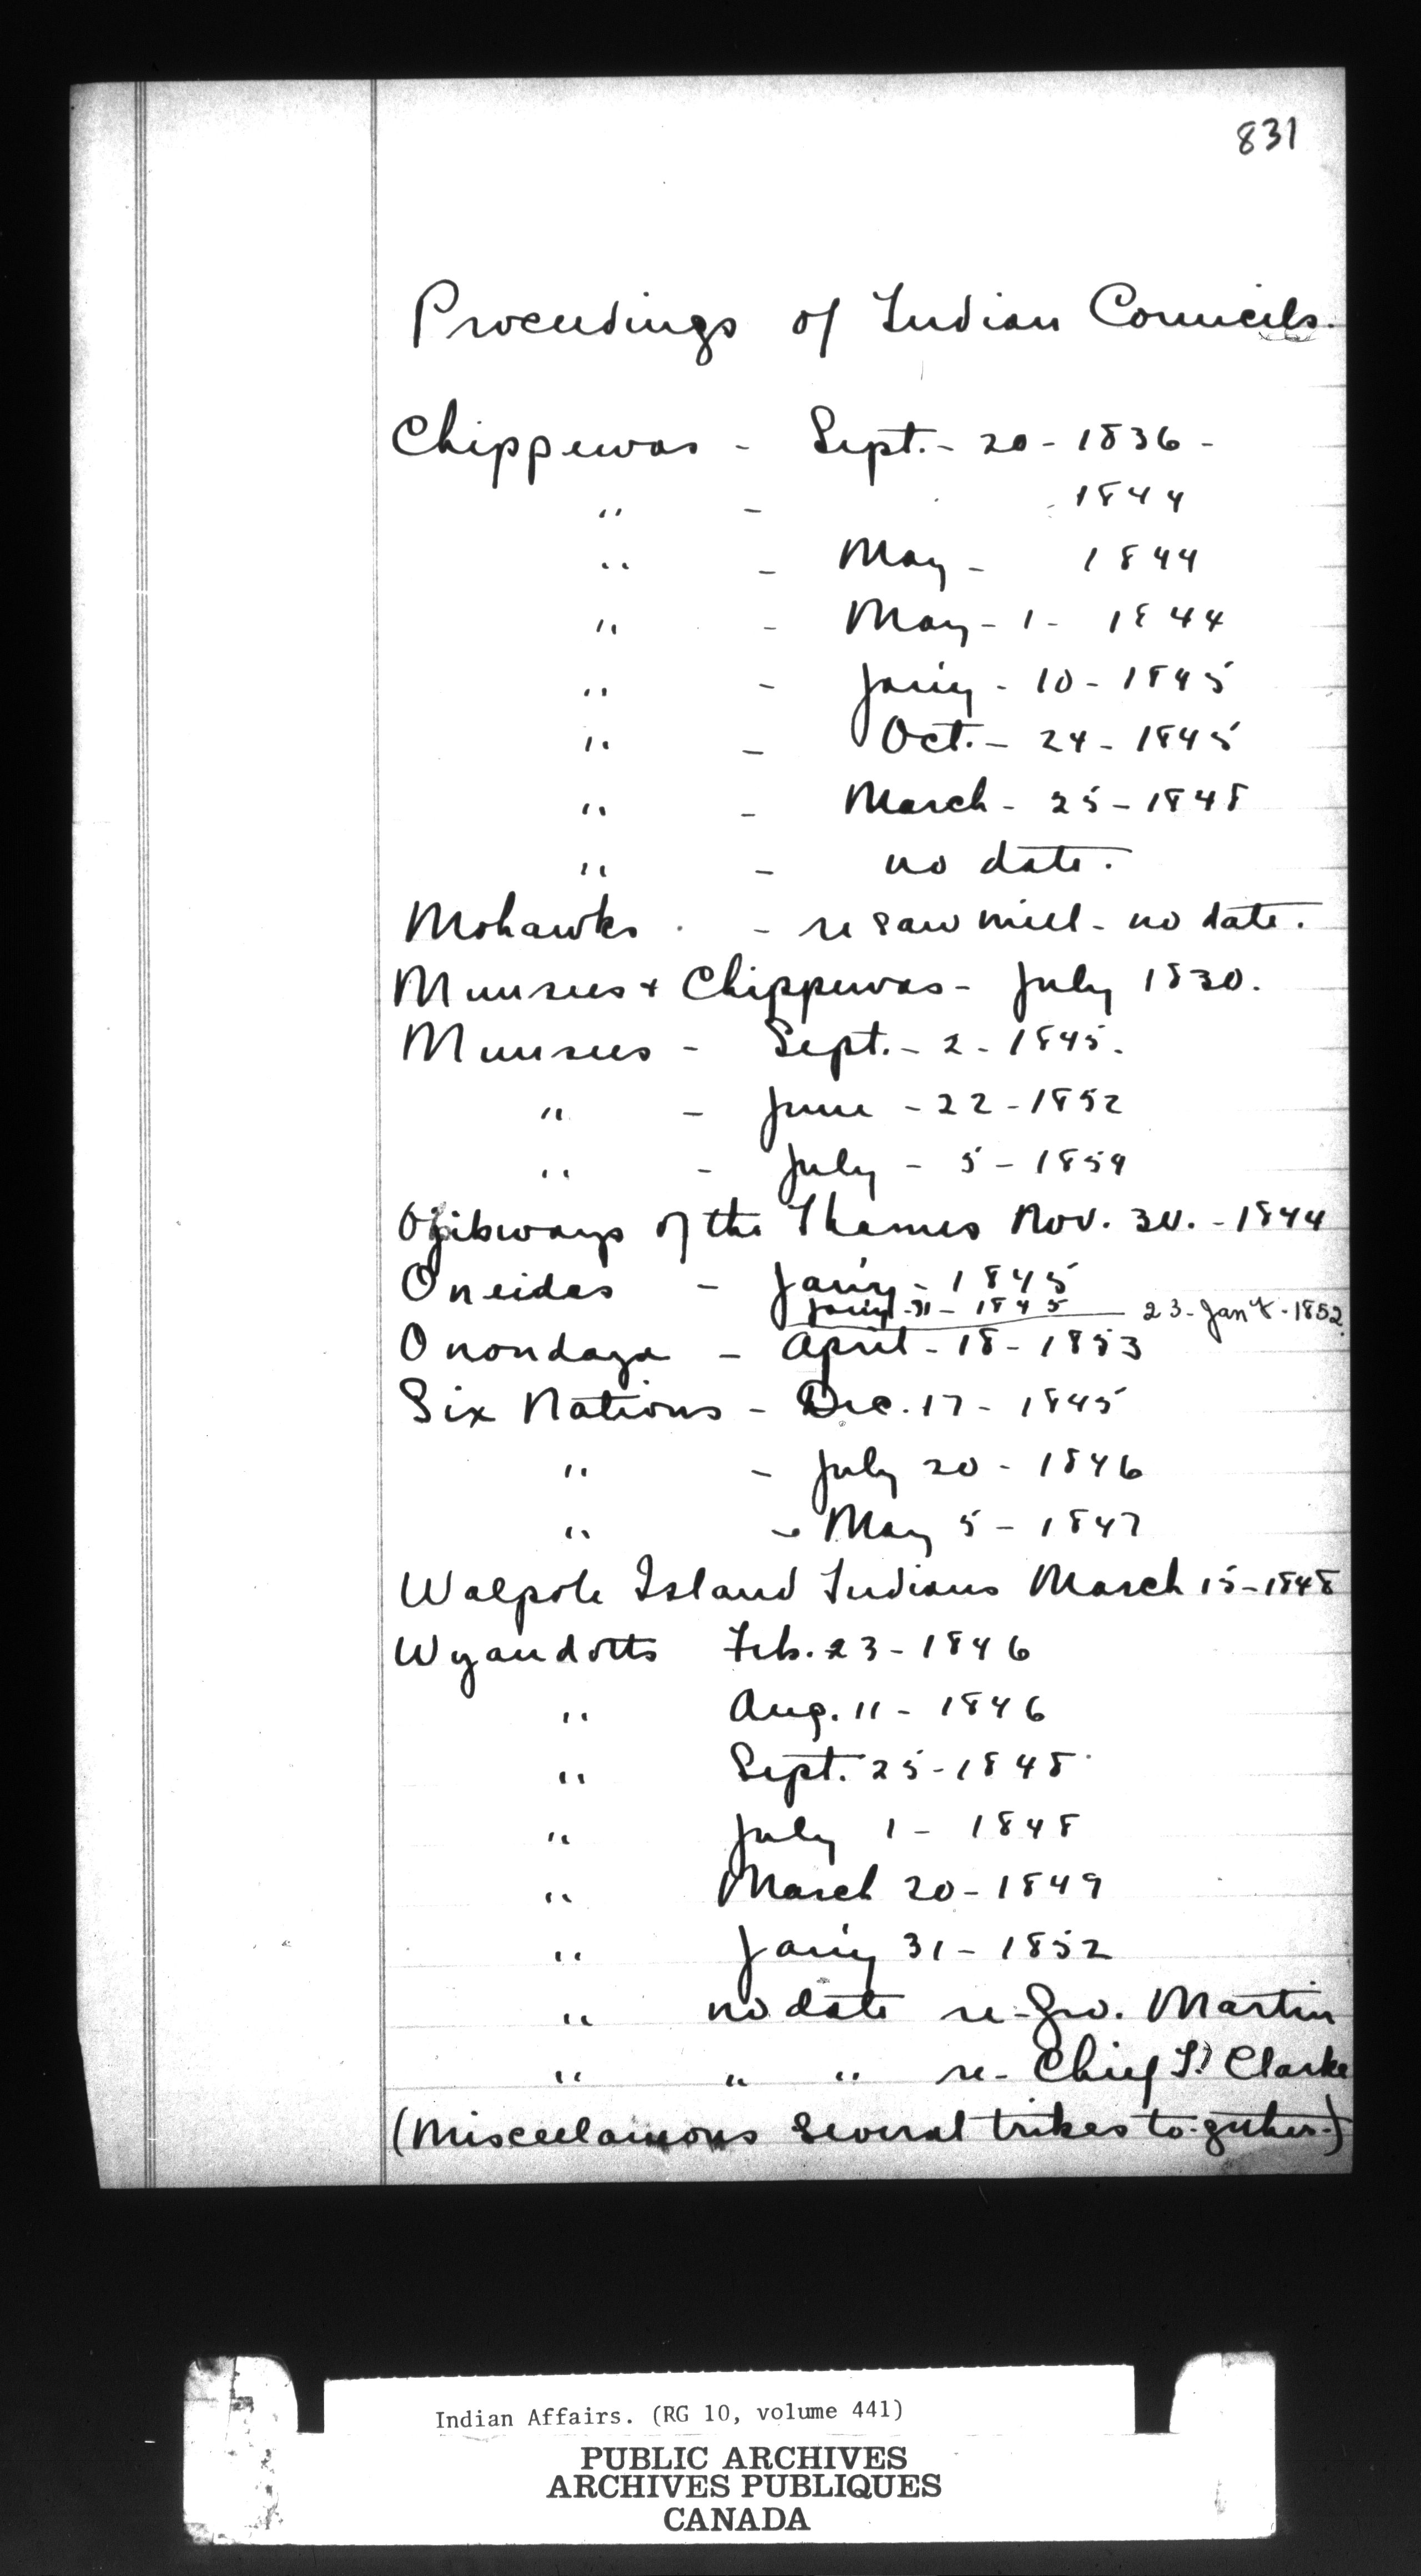 831
Proceedings of Indian Councils.
Chippewas - Sept. - 20 - 1836 -
" - 1844
" - May - 1844
" - May - 1 - 1844
" - Jan'y - 10 - 1845
" - Oct. - 24 - 1845
" - March - 25 - 1848
" - no date.
Mohawks - re saw mill - no date.
Munsees & Chippewas - July 1830.
Munsees - Sept. - 2 - 1845.
" - June - 22 - 1852
" - July - 5 - 1859
Ojibways of the Thames Nov. 30. - 1844
Oneidas - Jan'y - 1845
Jan'y - 31 - 1845 — 23 - Jany - 1852.
Onondaga - April - 18 - 1853
Six Nations - Dec. 17 - 1845
" - July 20 - 1846
" - May 5 - 1847
Walpole Island Indians March 15 - 1848
Wyandotts Feb. 23 - 1846
" Aug. 11 - 1846
" Sept. 25 - 1848
" July 1 - 1848
" March 20 - 1849
" Jan'y 31 - 1852
" no date re - Geo. Martin
" " " re - Chief Clarke
(Miscellaneous several tribes to-gether.)
Indian Affairs. (RG 10, volume 441)
PUBLIC ARCHIVES
ARCHIVES PUBLIQUES
CANADA